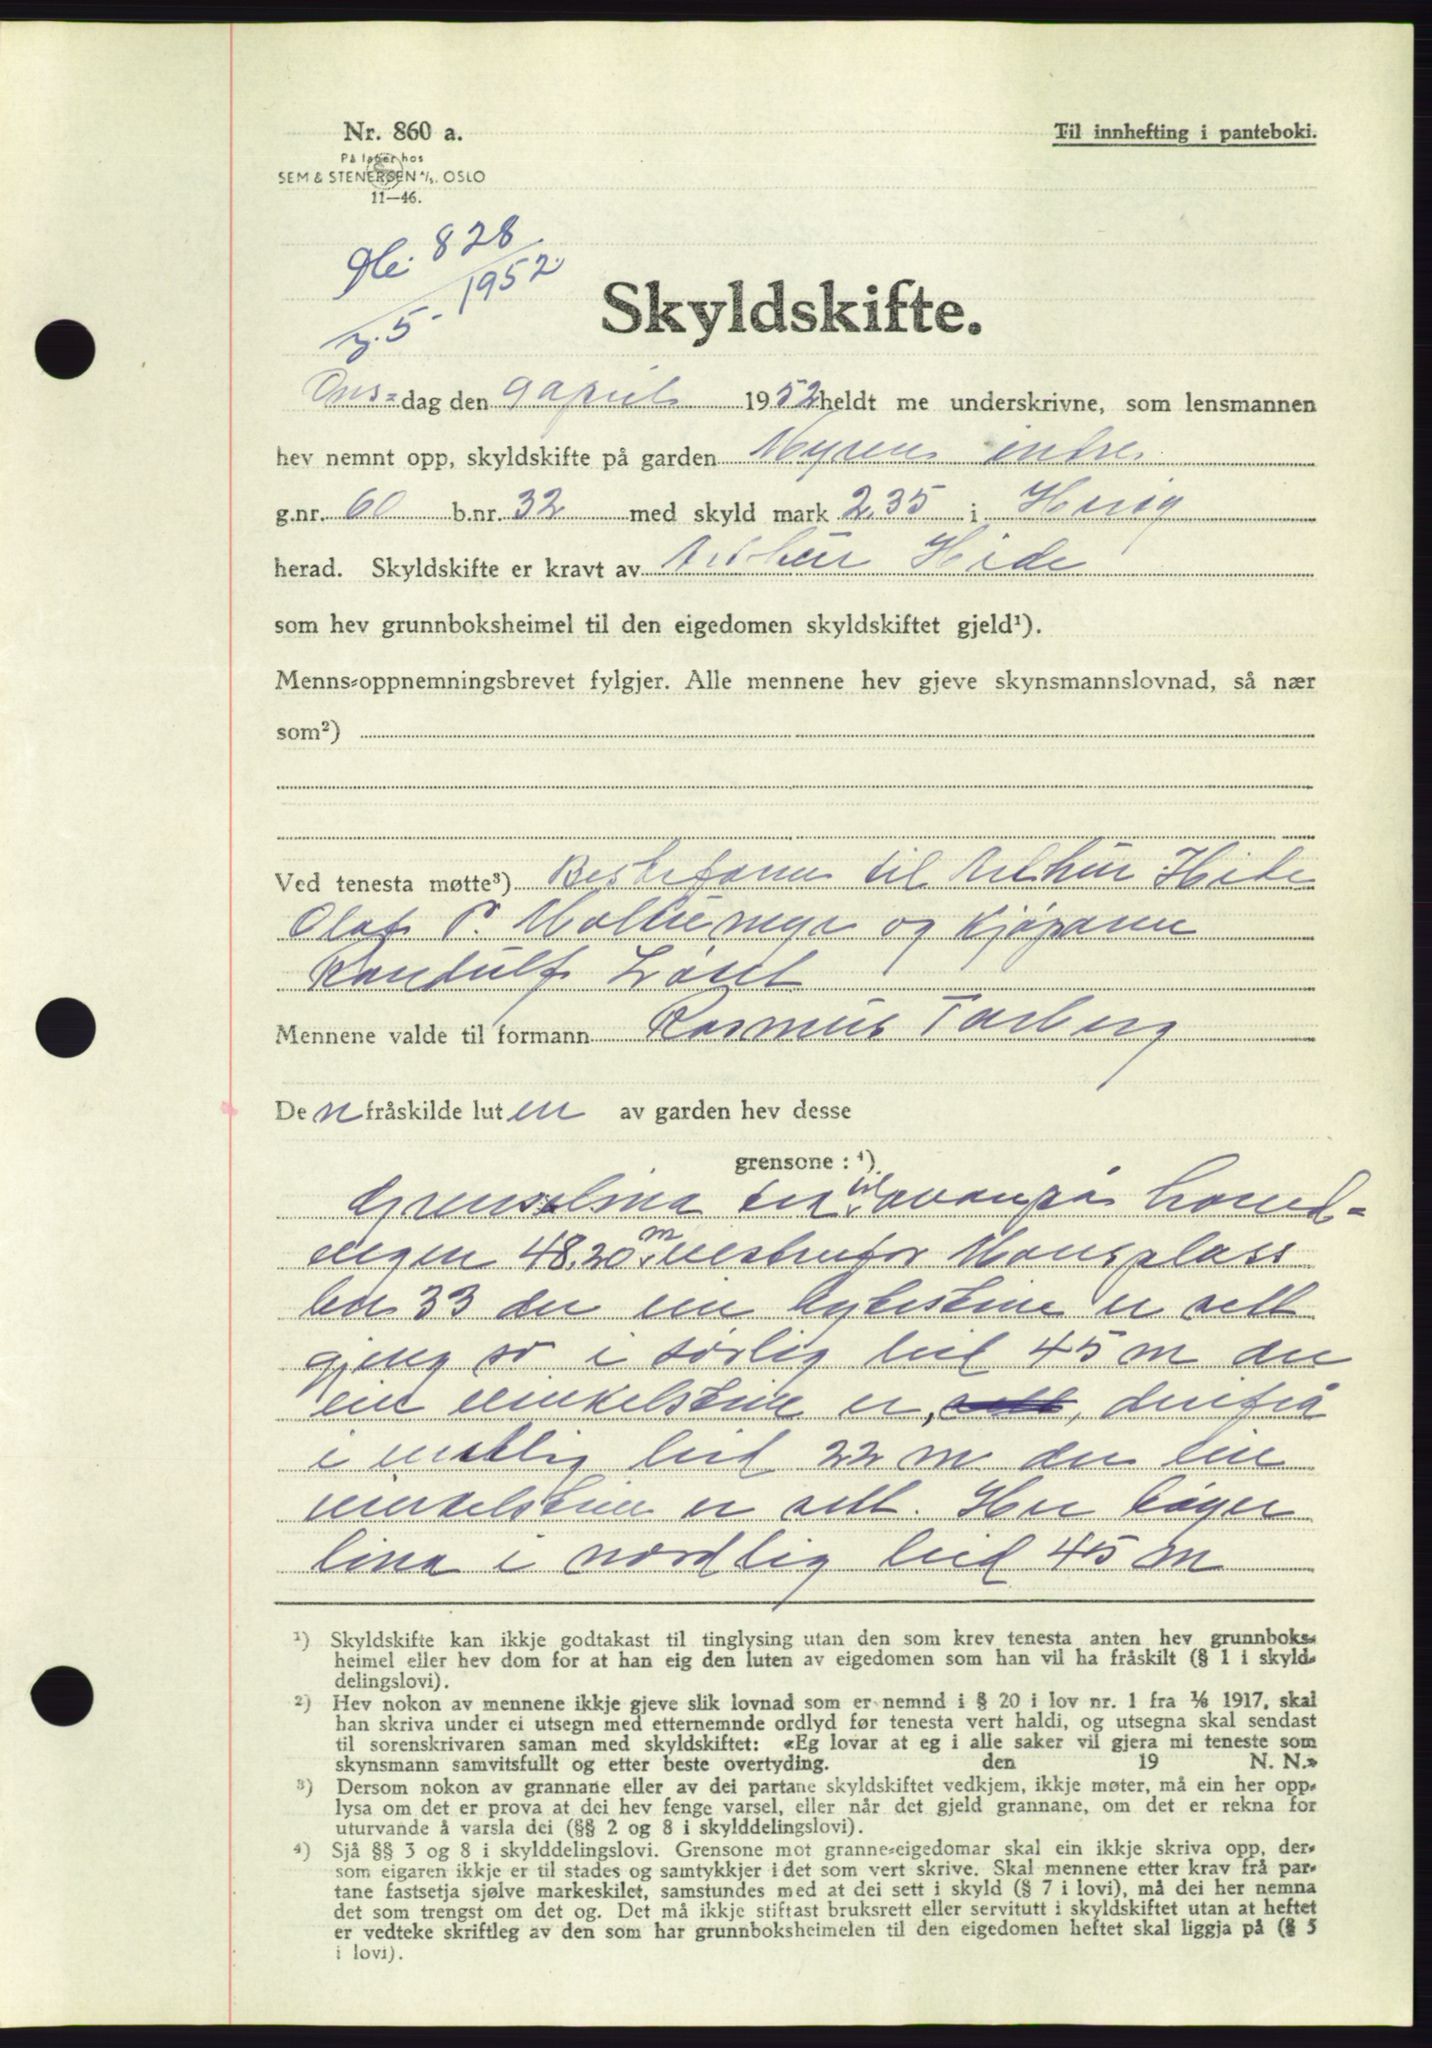 Nr. 860 a.
Til innhefting i panteboki.
På lager hos
SEM & STENERSEN A/S. OSLO
11—46.
828
1952
5
Skyldskifte.
Ons-dag den 9 april 1952 heldt me underskrivne, som lensmannen
hev nemnt opp, skyldskifte på garden Myren indre
g.nr. 60 b.nr. 32 med skyld mark 2.35 i Herøy
herad. Skyldskifte er kravt av Arthur Hide
som hev grunnboksheimel til den eigedomen skyldskiftet gjeld¹).
Menns-oppnemningsbrevet fylgjer. Alle mennene hev gjeve skynsmannslovnad, så nær
som²)
Ved tenesta møtte³) Bestefaren til Arthur Hide
Olaf P. og Kjøparen
Randulf
Mennene valde til formann Rasmus Tarberg
Den fråskilde luten av garden hev desse
grensone: ⁴)
Grenselina tek til ovanpå hovud-
vegen 48.20 m vestanfor Monsplass
bnr 33 der ein bytestein er sett
gjeng so i sørlig leid 45 m der
ein vinkelstein er, sett, derifrå
i vestlig leid 22 m der ein
vinkelstein er sett. Her bøyer
lina i nordlig leid 45 m
¹) Skyldskifte kan ikkje godtakast til tinglysing utan den som krev tenesta anten hev grunnboks-
heimel eller hev dom for at han eig den luten av eigedomen som han vil ha fråskilt (§ 1 i skyld-
delingslovi).
²) Hev nokon av mennene ikkje gjeve slik lovnad som er nemnd i § 20 i lov nr. 1 fra 1/6 1917, skal
han skriva under ei utsegn med etternemnde ordlyd før tenesta vert haldi, og utsegna skal sendast
til sorenskrivaren saman med skyldskiftet: «Eg lovar at eg i alle saker vil gjera mi teneste som
skynsmann samvitsfullt og etter beste overtyding. den 19 N. N.»
³) Dersom nokon av grannane eller av dei partane skyldskiftet vedkjem, ikkje møter, må ein her opp-
lysa om det er prova at dei hev fenge varsel, eller når det gjeld grannane, om det er rekna for
uturvande å varsla dei (§§ 2 og 8 i skylddelingslovi).
⁴) Sjå §§ 3 og 8 i skylddelingslovi. Grensone mot granne-eigedomar skal ein ikkje skriva opp, der-
som eigaren ikkje er til stades og samtykkjer i det som vert skrive. Skal mennene etter krav frå par-
tane fastsetja sjølve markeskilet, samstundes med at dei sett i skyld (§ 7 i lovi), må dei her nemna
det som trengst om det og. Det må ikkje stiftast bruksrett eller servitutt i skyldskiftet utan at heftet
er vedteke skriftleg av den som har grunnboksheimelen til den eigedomen heftet skal liggja på (§ 5
i lovi).